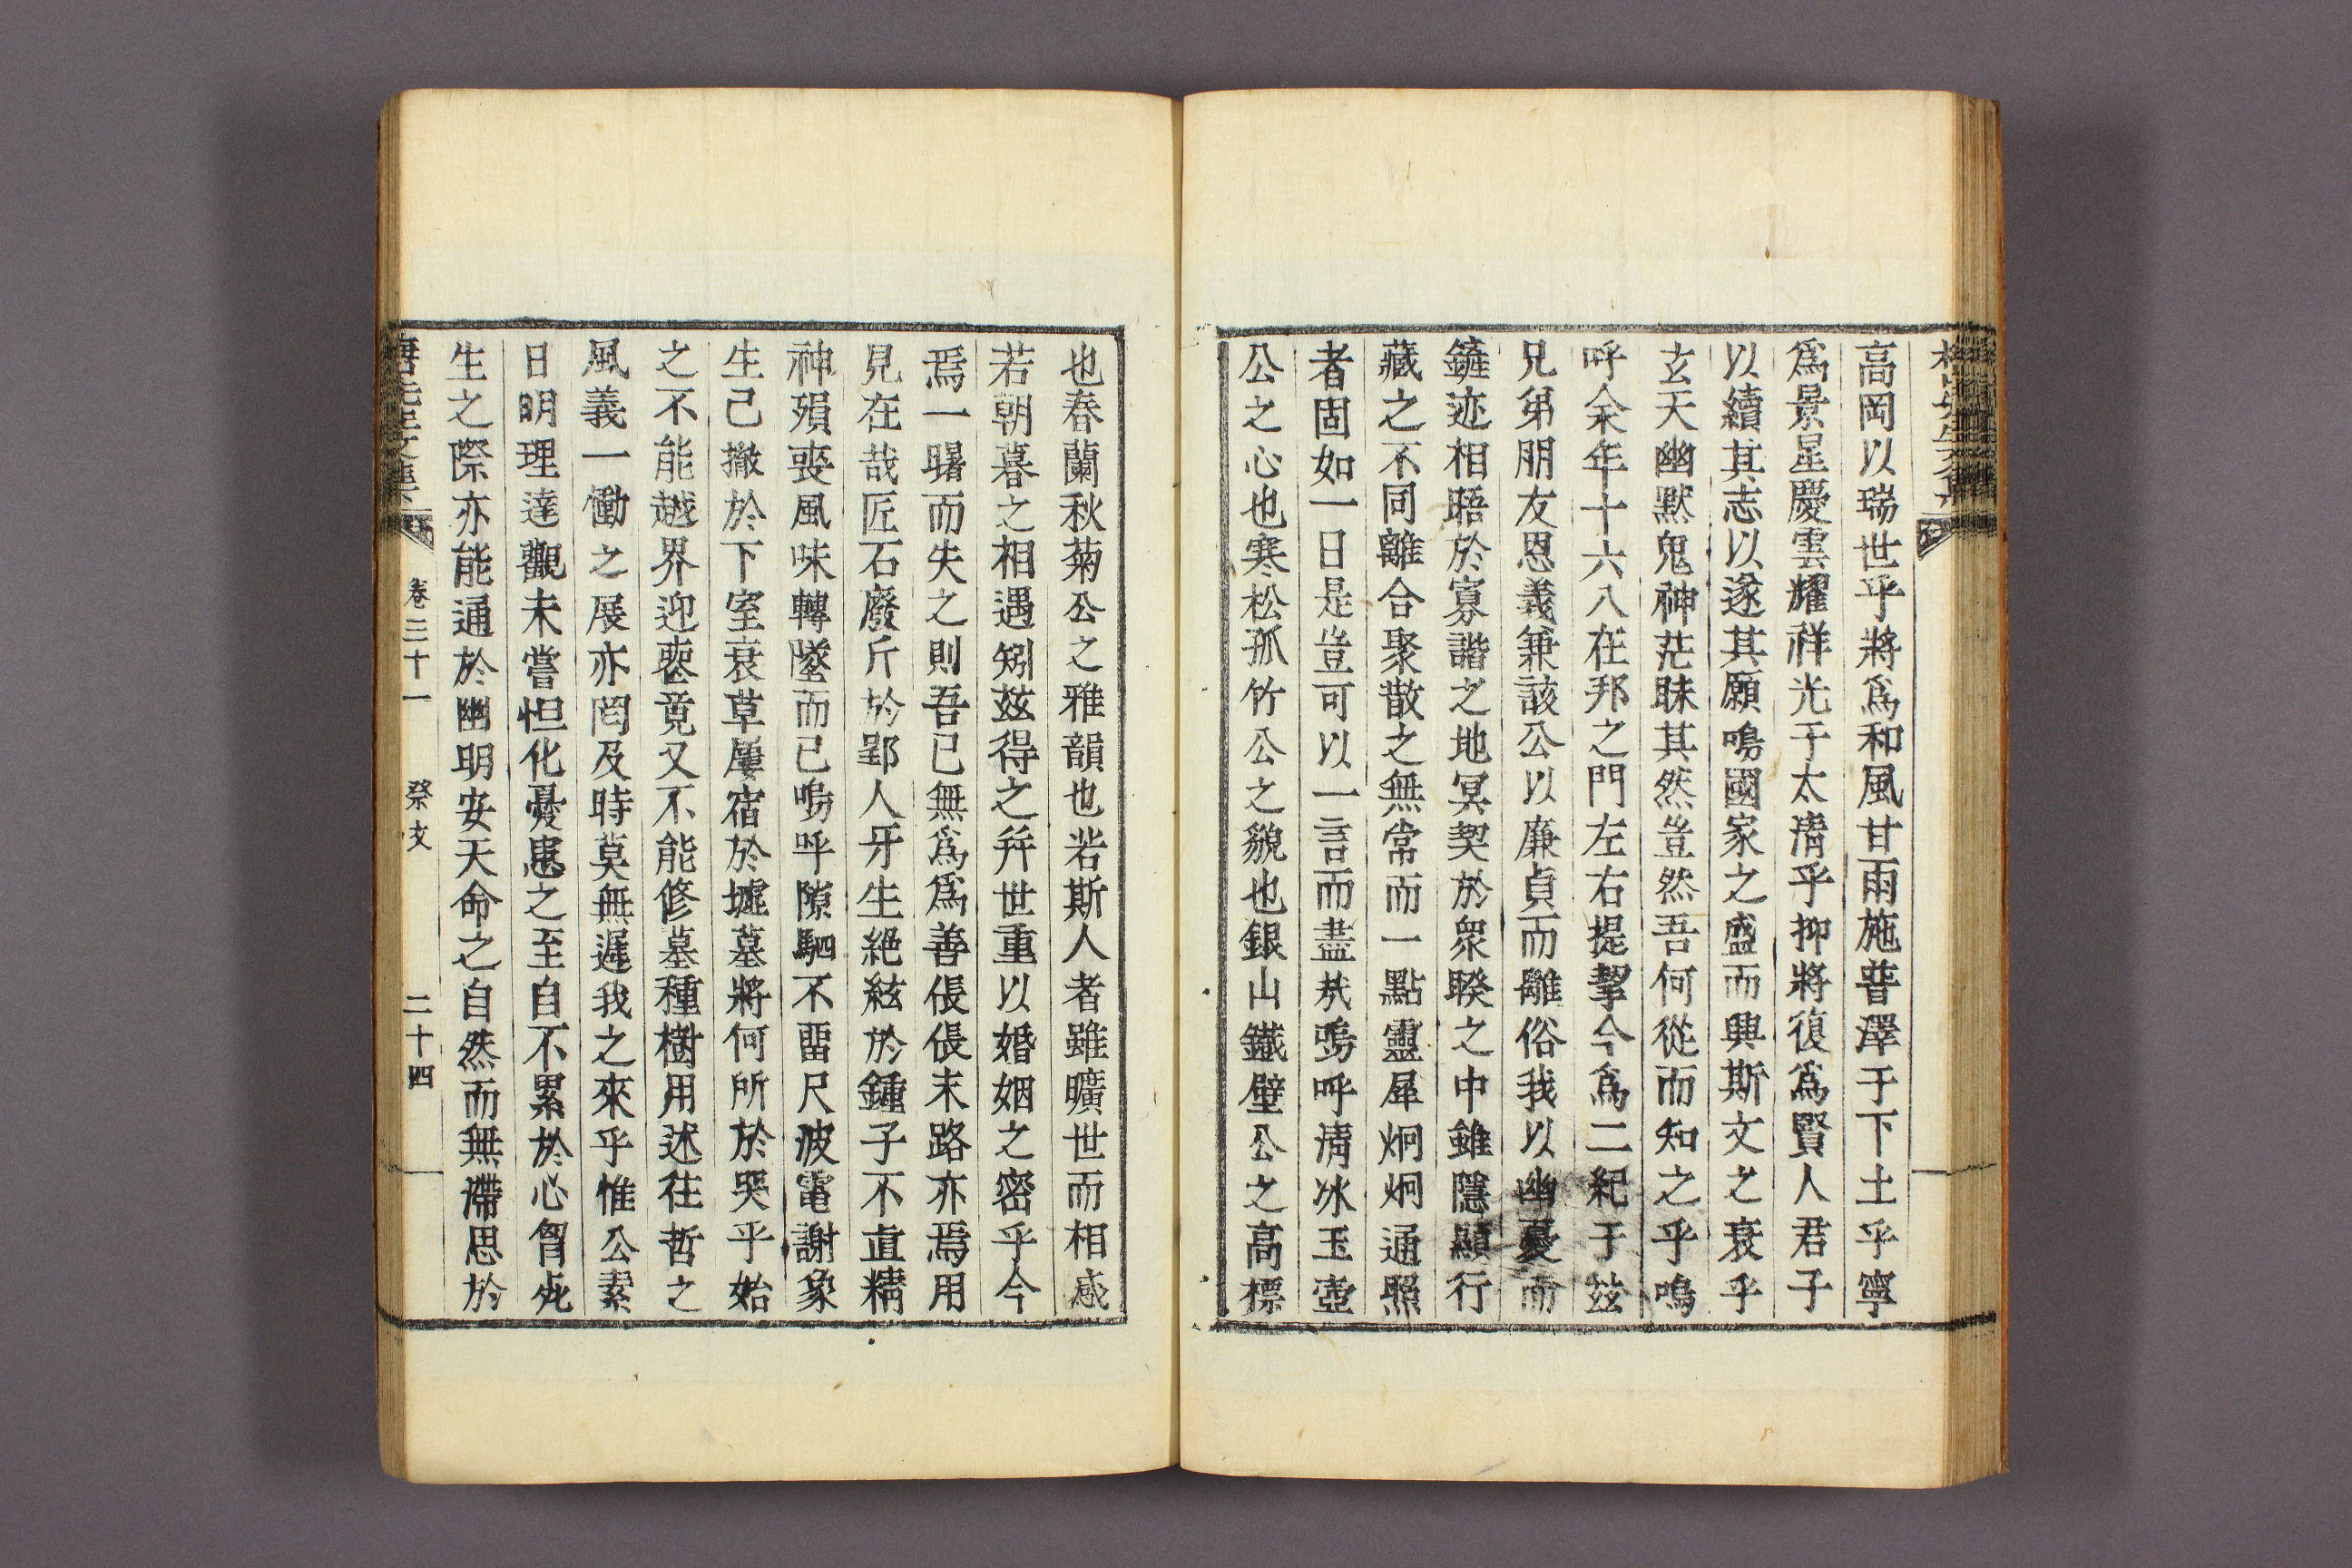 高岡以瑞世乎將爲和風甘雨施普澤于下土乎寧
爲景星慶雲耀祥光于太清乎抑將復爲賢人君子
以續其志以遂其願鳴國家之盛而興斯文之衰乎
玄天幽默鬼神茫昧其然豈然吾何從而知之乎嗚
呼余年十六八在邦之門左右提挈今爲二紀于茲
兄弟朋友恩義兼該公以廉貞而離俗我以幽憂而
鏟迹相晤於寡諧之地冥契於衆睽之中雖隱顯行
藏之不同離合聚散之無常而一點靈犀炯炯通照
者固如一日是豈可以一言而盡哉嗚呼清冰玉壺
公之心也寒松孤竹公之貌也銀山鐵壁公之高標
也春蘭秋菊公之雅韻也若斯人者雖曠世而相感
若朝暮之相遇矧茲得之幷世重以婚姻之密乎今
焉一曙而失之則吾已無爲爲善倀倀末路亦焉用
見在哉匠石廢斤於郢人牙生絕絃於鍾子不直精
神殞喪風味轉墜而已嗚呼隙駟不留尺波電謝象
生已撤於下室衰草屢宿於墟墓將何所於哭乎始
之不能越界迎喪竟又不能修墓種樹用述往哲之
風義一慟之展亦罔及時莫無遲我之來乎惟公素
日明理達觀未嘗怛化憂患之至自不累於心胷死
生之際亦能通於幽明安天命之自然而無滯思於
卷三十一 祭文 二十四